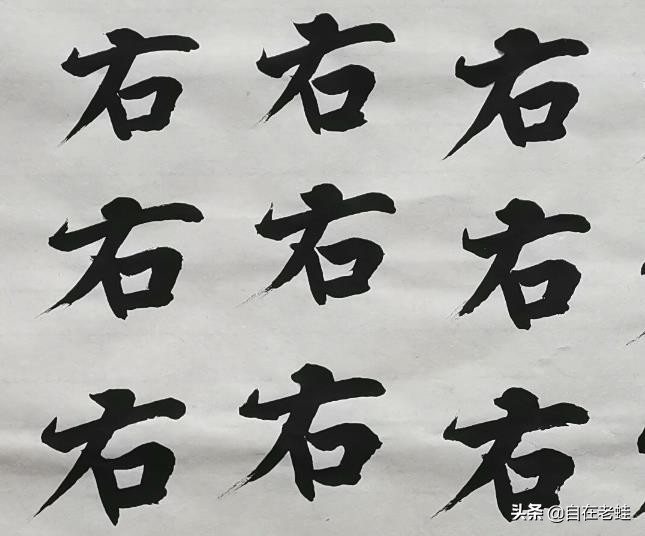 右 右 右
右 右 右
右 右 右
头条 @自在老蛙